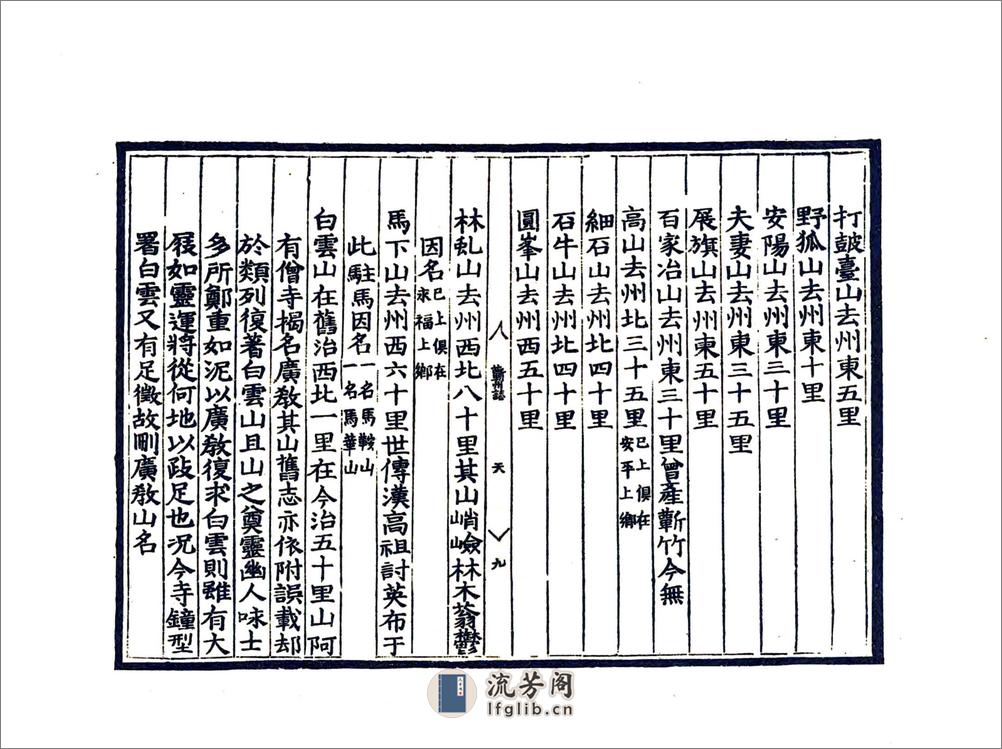 打鼓臺山去州東五里
野狐山去州東十里
安陽山去州東三十里
夫妻山去州東三十五里
展旗山去州東五十里
百家冶山去州東三十里曾產蘄竹今無
高山去州北三十五里已上俱在安平上鄉
細石山去州北四十里
石牛山去州北四十里
圓峯山去州西五十里
蘄州誌 天 九
林虬山去州西北八十里其山峭嶮林木蓊鬱
因名已上俱在永福上鄉
馬下山去州西六十里世傳漢高祖討英布于
此駐馬因名一名馬鞍山一名馬華山
白雲山在舊治西北一里在今治五十里山阿
有僧寺揭名廣教其山舊志亦依附誤載却
於類列復著白雲山且山之奠靈幽人咏士
多所鄭重如泥以廣教復求白雲則雖有大
屐如靈運將從何地以跂足也况今寺鐘型
署白雲又有足徵故刪廣教山名
流芳阁
lfglib.cn